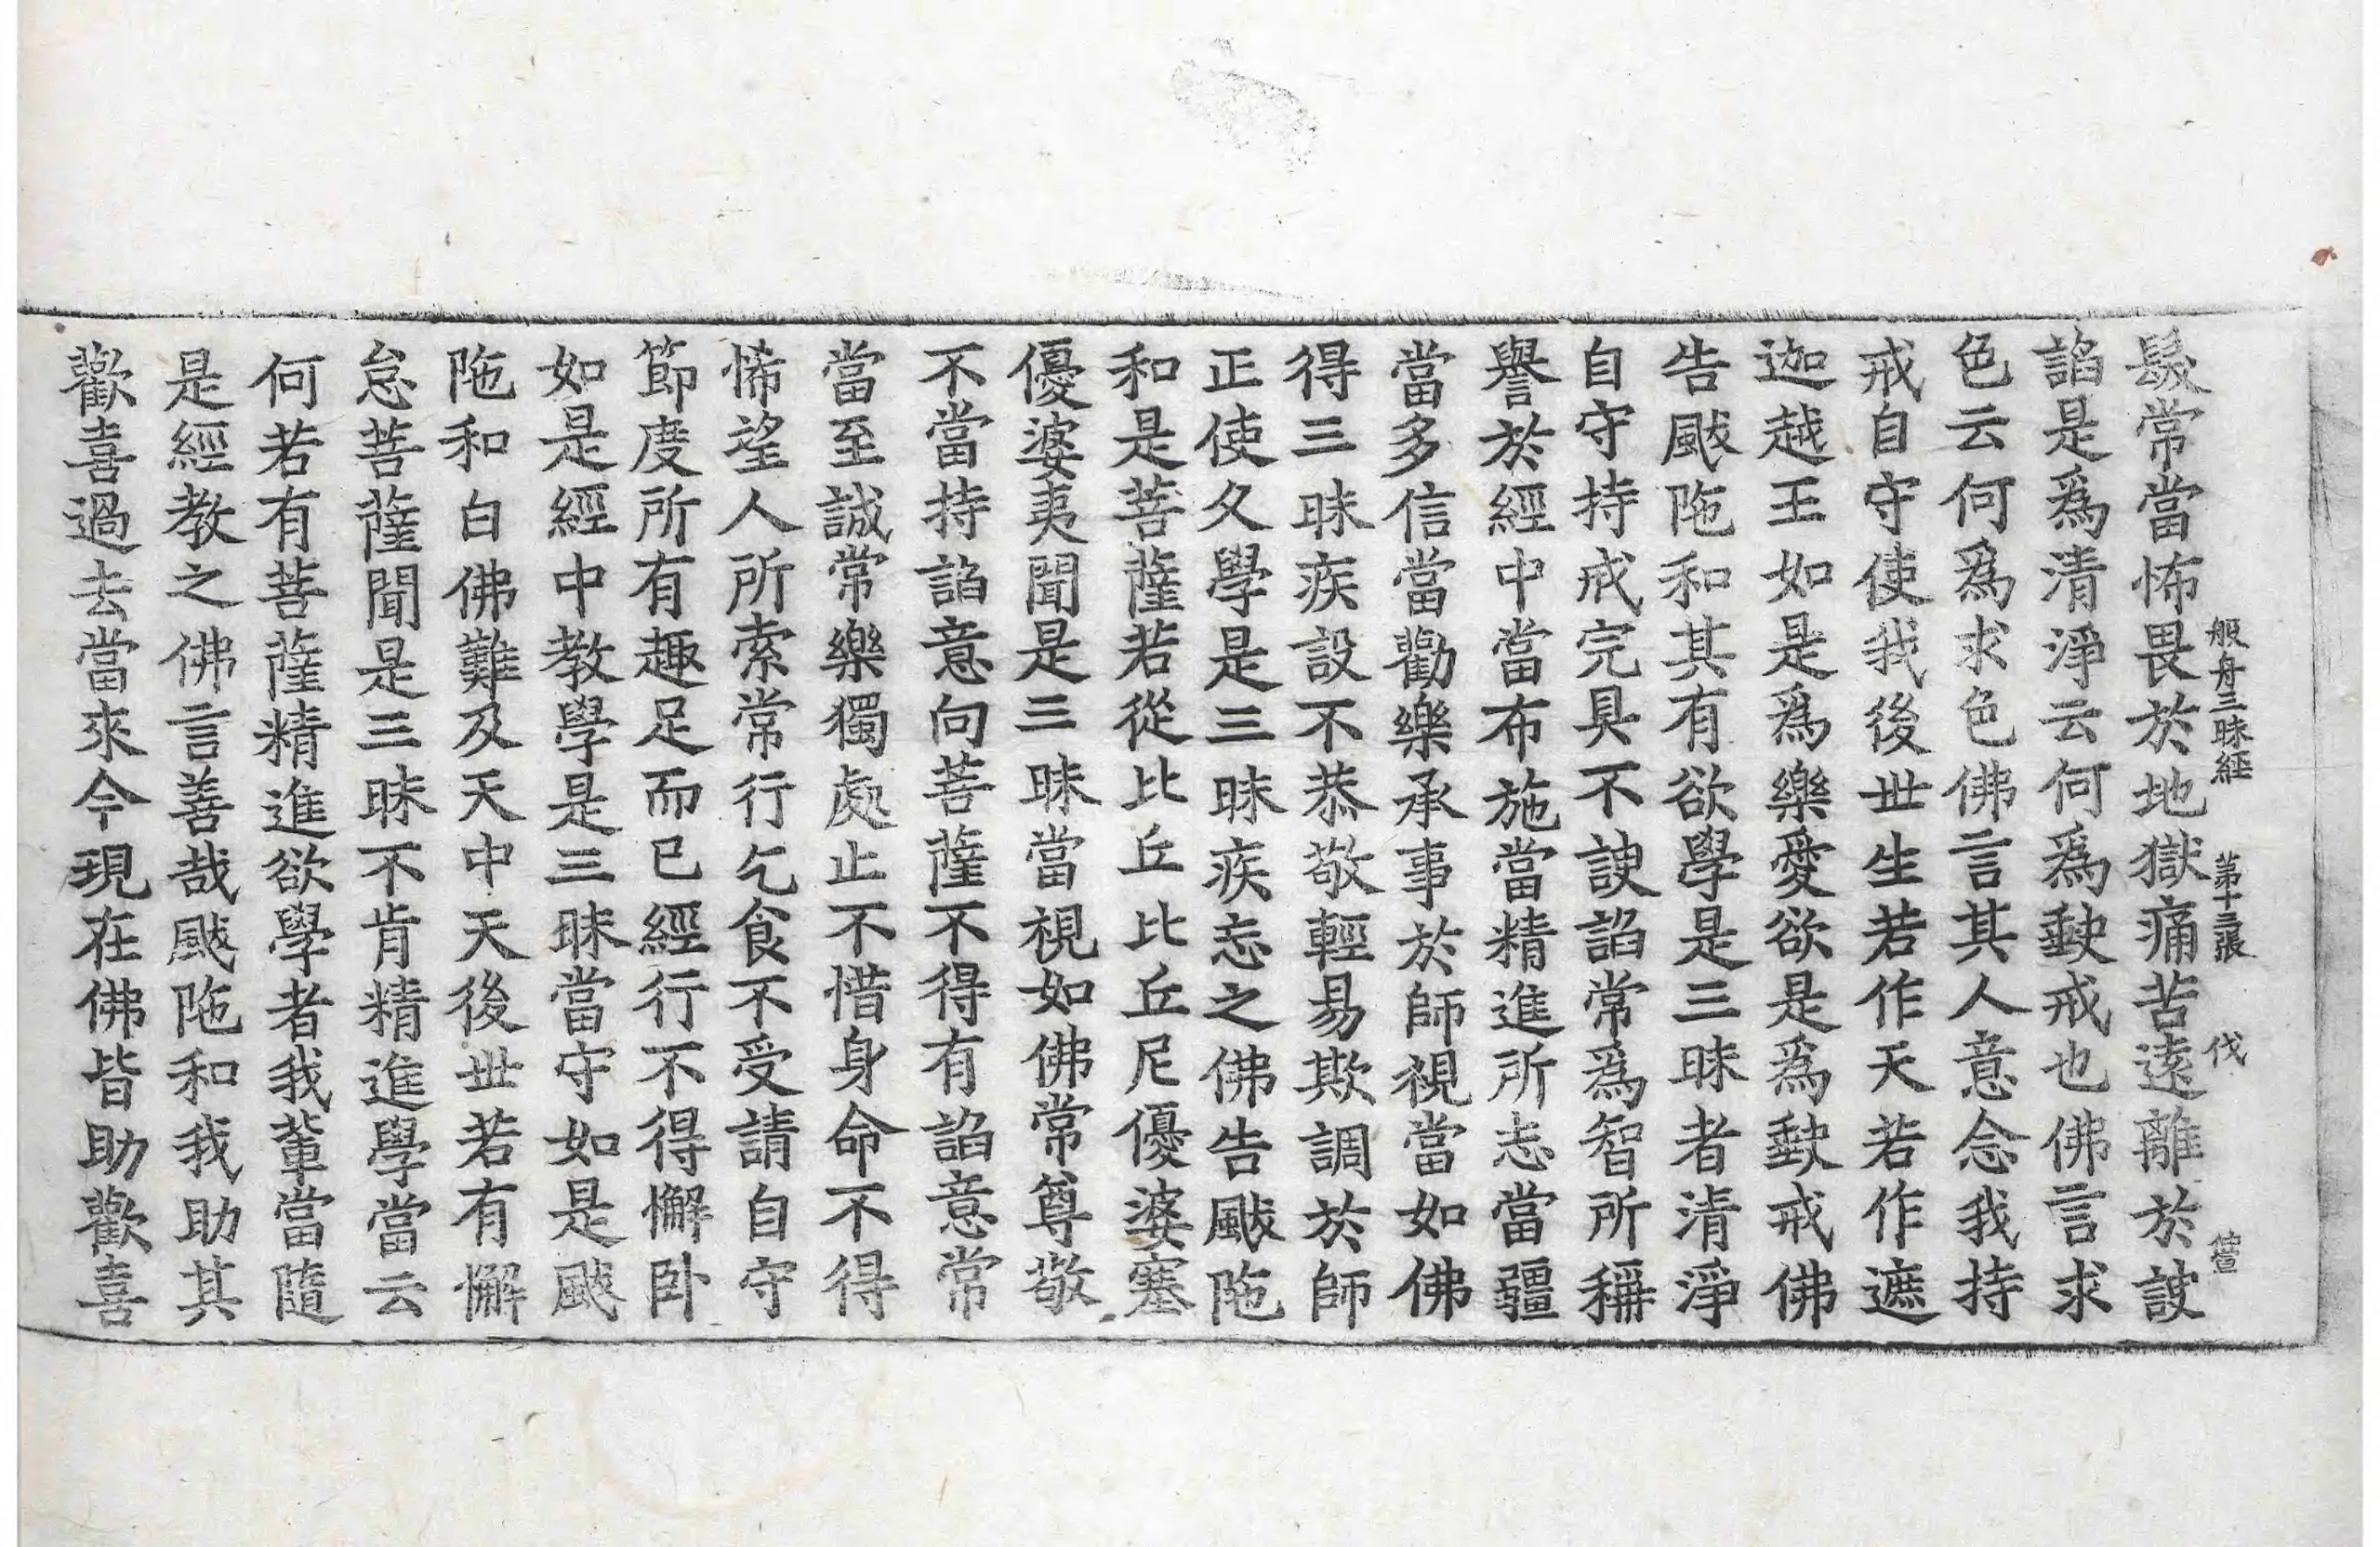 般舟三昧經 第十三張 伐
髮常當怖畏於地獄痛苦遠離於諛
諂是爲清淨云何爲𡙇戒也佛言求
色云何爲求色佛言其人意念我持
戒自守使我後世生若作天若作遮
迦越王如是爲樂愛欲是爲𡙇戒佛
告颰陁和其有欲學是三昧者清淨
自守持戒完具不諛諂常爲智所稱
譽於經中當布施當精進所志當疆
當多信當勸樂承事於師視當如佛
得三昧疾設不恭敬輕易欺調於師
正使久學是三昧疾忘之佛告颰陁
和是菩薩若從比丘比丘尼優婆塞
優婆夷聞是三昧當視如佛常尊敬
不當持諂意向菩薩不得有諂意常
當至誠常樂獨處止不惜身命不得
悕望人所索常行乞食不受請自守
節度所有趣足而已經行不得懈卧
如是經中教學是三昧當守如是颰
陁和白佛難及天中天後世若有懈
怠菩薩聞是三昧不肯精進學當云
何若有菩薩精進欲學者我輩當隨
是經教之佛言善哉颰陁和我助其
歡喜過去當來今現在佛皆助歡喜